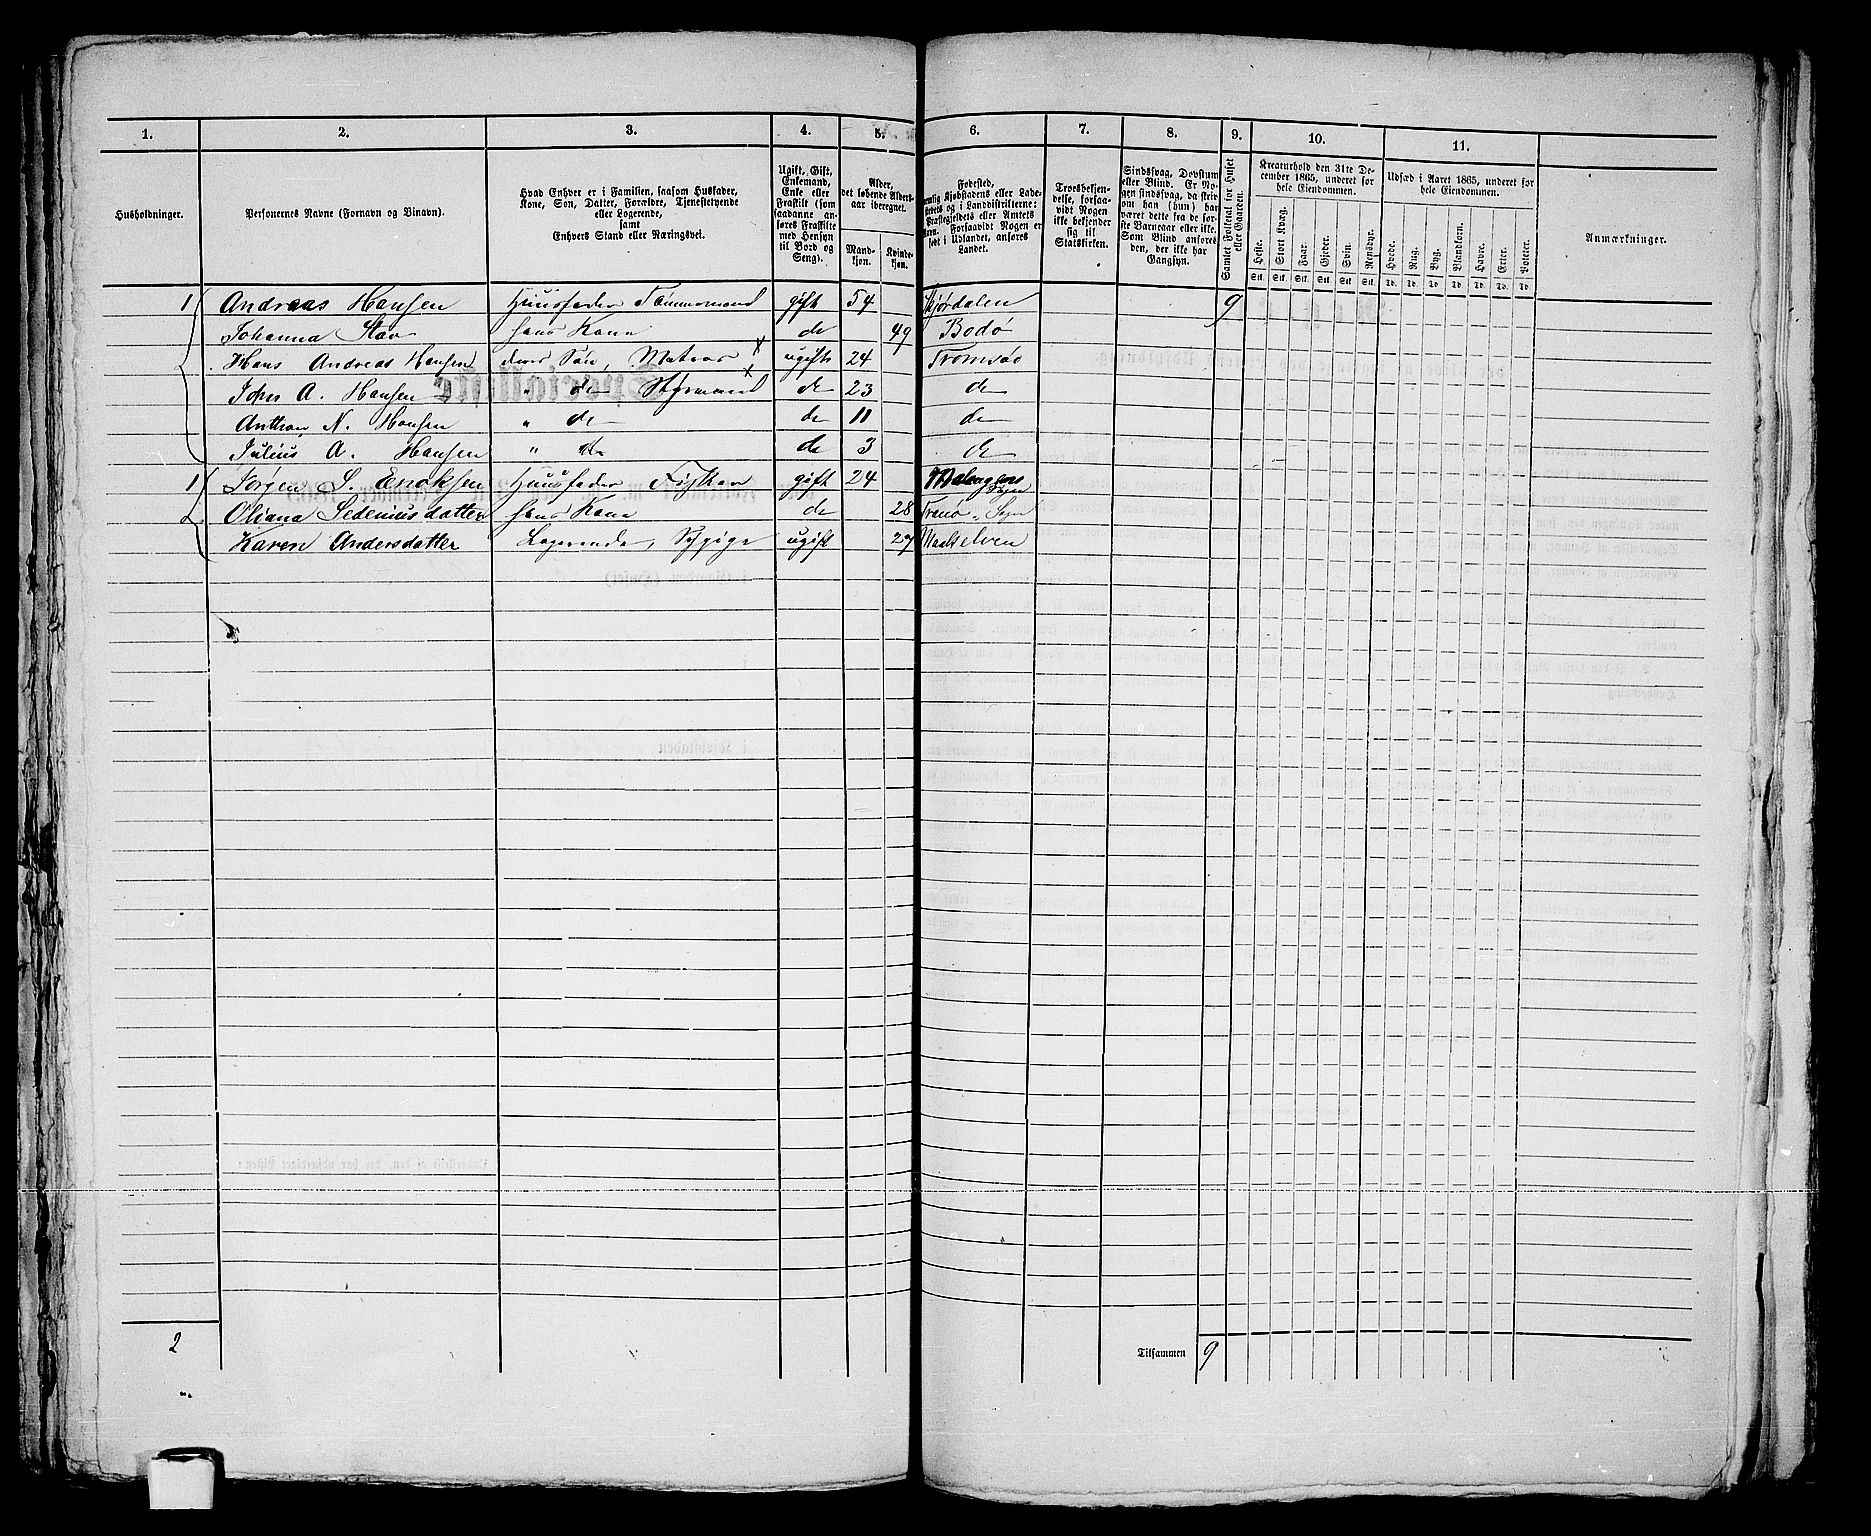 1. 2. 3. 4. 5. 6. 7. 8. 9. 10. 11.
Husholdninger.
Personernes Navne (Fornavn og Binavn).
Hvad Enhver er i Familien, saasom Husfader,
Kone, Søn, Datter, Forældre, Tjenestetyende
eller Logerende,
samt
Enhvers Stand eller Næringsvei.
Ugift, Gift,
Enkemand,
Enke eller
Fraskilt (som
saadanne an-
føres Fraskilte
med Hensyn
til Bord og
Seng).
Alder,
det løbende Alders-
aar iberegnet.
Mand-
kjøn.
Kvinde-
kjøn.
Fødested,
nemlig Kjøbstadens eller Lade-
stedets og i Landdistrikterne:
Præstegjeldets eller Amtets
Navn. Forsaavidt Nogen er
født i Udlandet, anføres
Landet.
Troesbekjen-
delse, forsaa-
vidt Nogen
ikke bekjender
sig til
Statskirken.
Sindssvag, Døvstum
eller Blind. Er No-
gen sindssvag, da skriv
om han (hun) har
været dette fra de før-
ste Barneaar eller ikke.
Som Blind anføres
den, der ikke har
Gangsyn.
Samlet Folketal for Huset
eller Gaarden.
Kreaturhold den 31te De-
cember 1865, underet for
hele Eiendommen.
Heste. Stort Kvæg. Faar. Gjeder. Svin. Rensdyr.
Stk. Stk. Stk. Stk. Stk. Stk.
Udsæd i Aaret 1865, underet for
hele Eiendommen.
Hvede. Rug. Byg. Blandkorn. Havre. Erter. Poteter.
Td. Td. Td. Td. Td. Td. Td.
Anmærkninger.
1 Andreas Hansen Huusfader Tømmermand gift 54 Stjørdalen 9
Johanna Stav hans Kone do 49 Bodø
Hans Andreas Hansen deres Søn, Matros x ugift 24 Tromsøe
John A. Hansen " do Styrmand x do 23 do
Anthon N. Hansen " do do 11 do
Julius A. Hansen " do do 3 do
1 Jørgen S. Enoksen Huusfader Fisker gift 24 Malangens Sogn
Oliana Sedeniusdatter hans Kone do 28 Tranø Sogn
Karen Andersdatter Logerende, Sypige ugift 27 Maalselven
2 Tilsammen 9